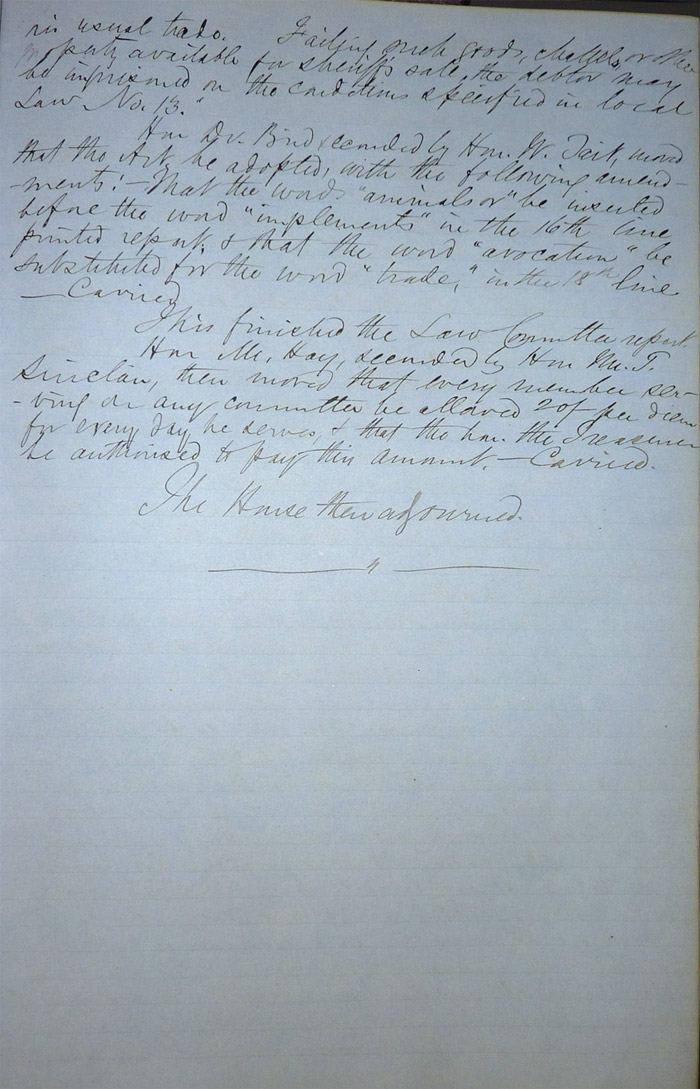 his usual trade. Failing such goods, chattels, or other
property available for sheriff's sale, the debtor may
be imprisoned on the conditions specified in local
Law No. 13."
Hon Dr. Brid seconded by Hon. W. Tait, moved
that the Art. be adopted, with the following amend-
-ments:- That the words "animals or" be inserted
before the word "implements" in the 16th line
printed report; & that the word "avocation" be
substituted for the word "trade," in the 18th line
- Carried
This finished the Law Committee report
Hon Mr. Hay, seconded by Hon Mr. T.
Sinclair, then moved that every member ser-
-ving on any committee be allowed 20/ per diem
for every day he serves, & that the hon. the Treasurer
be authorised to pay this amount. - Carried.
The House then adjourned.